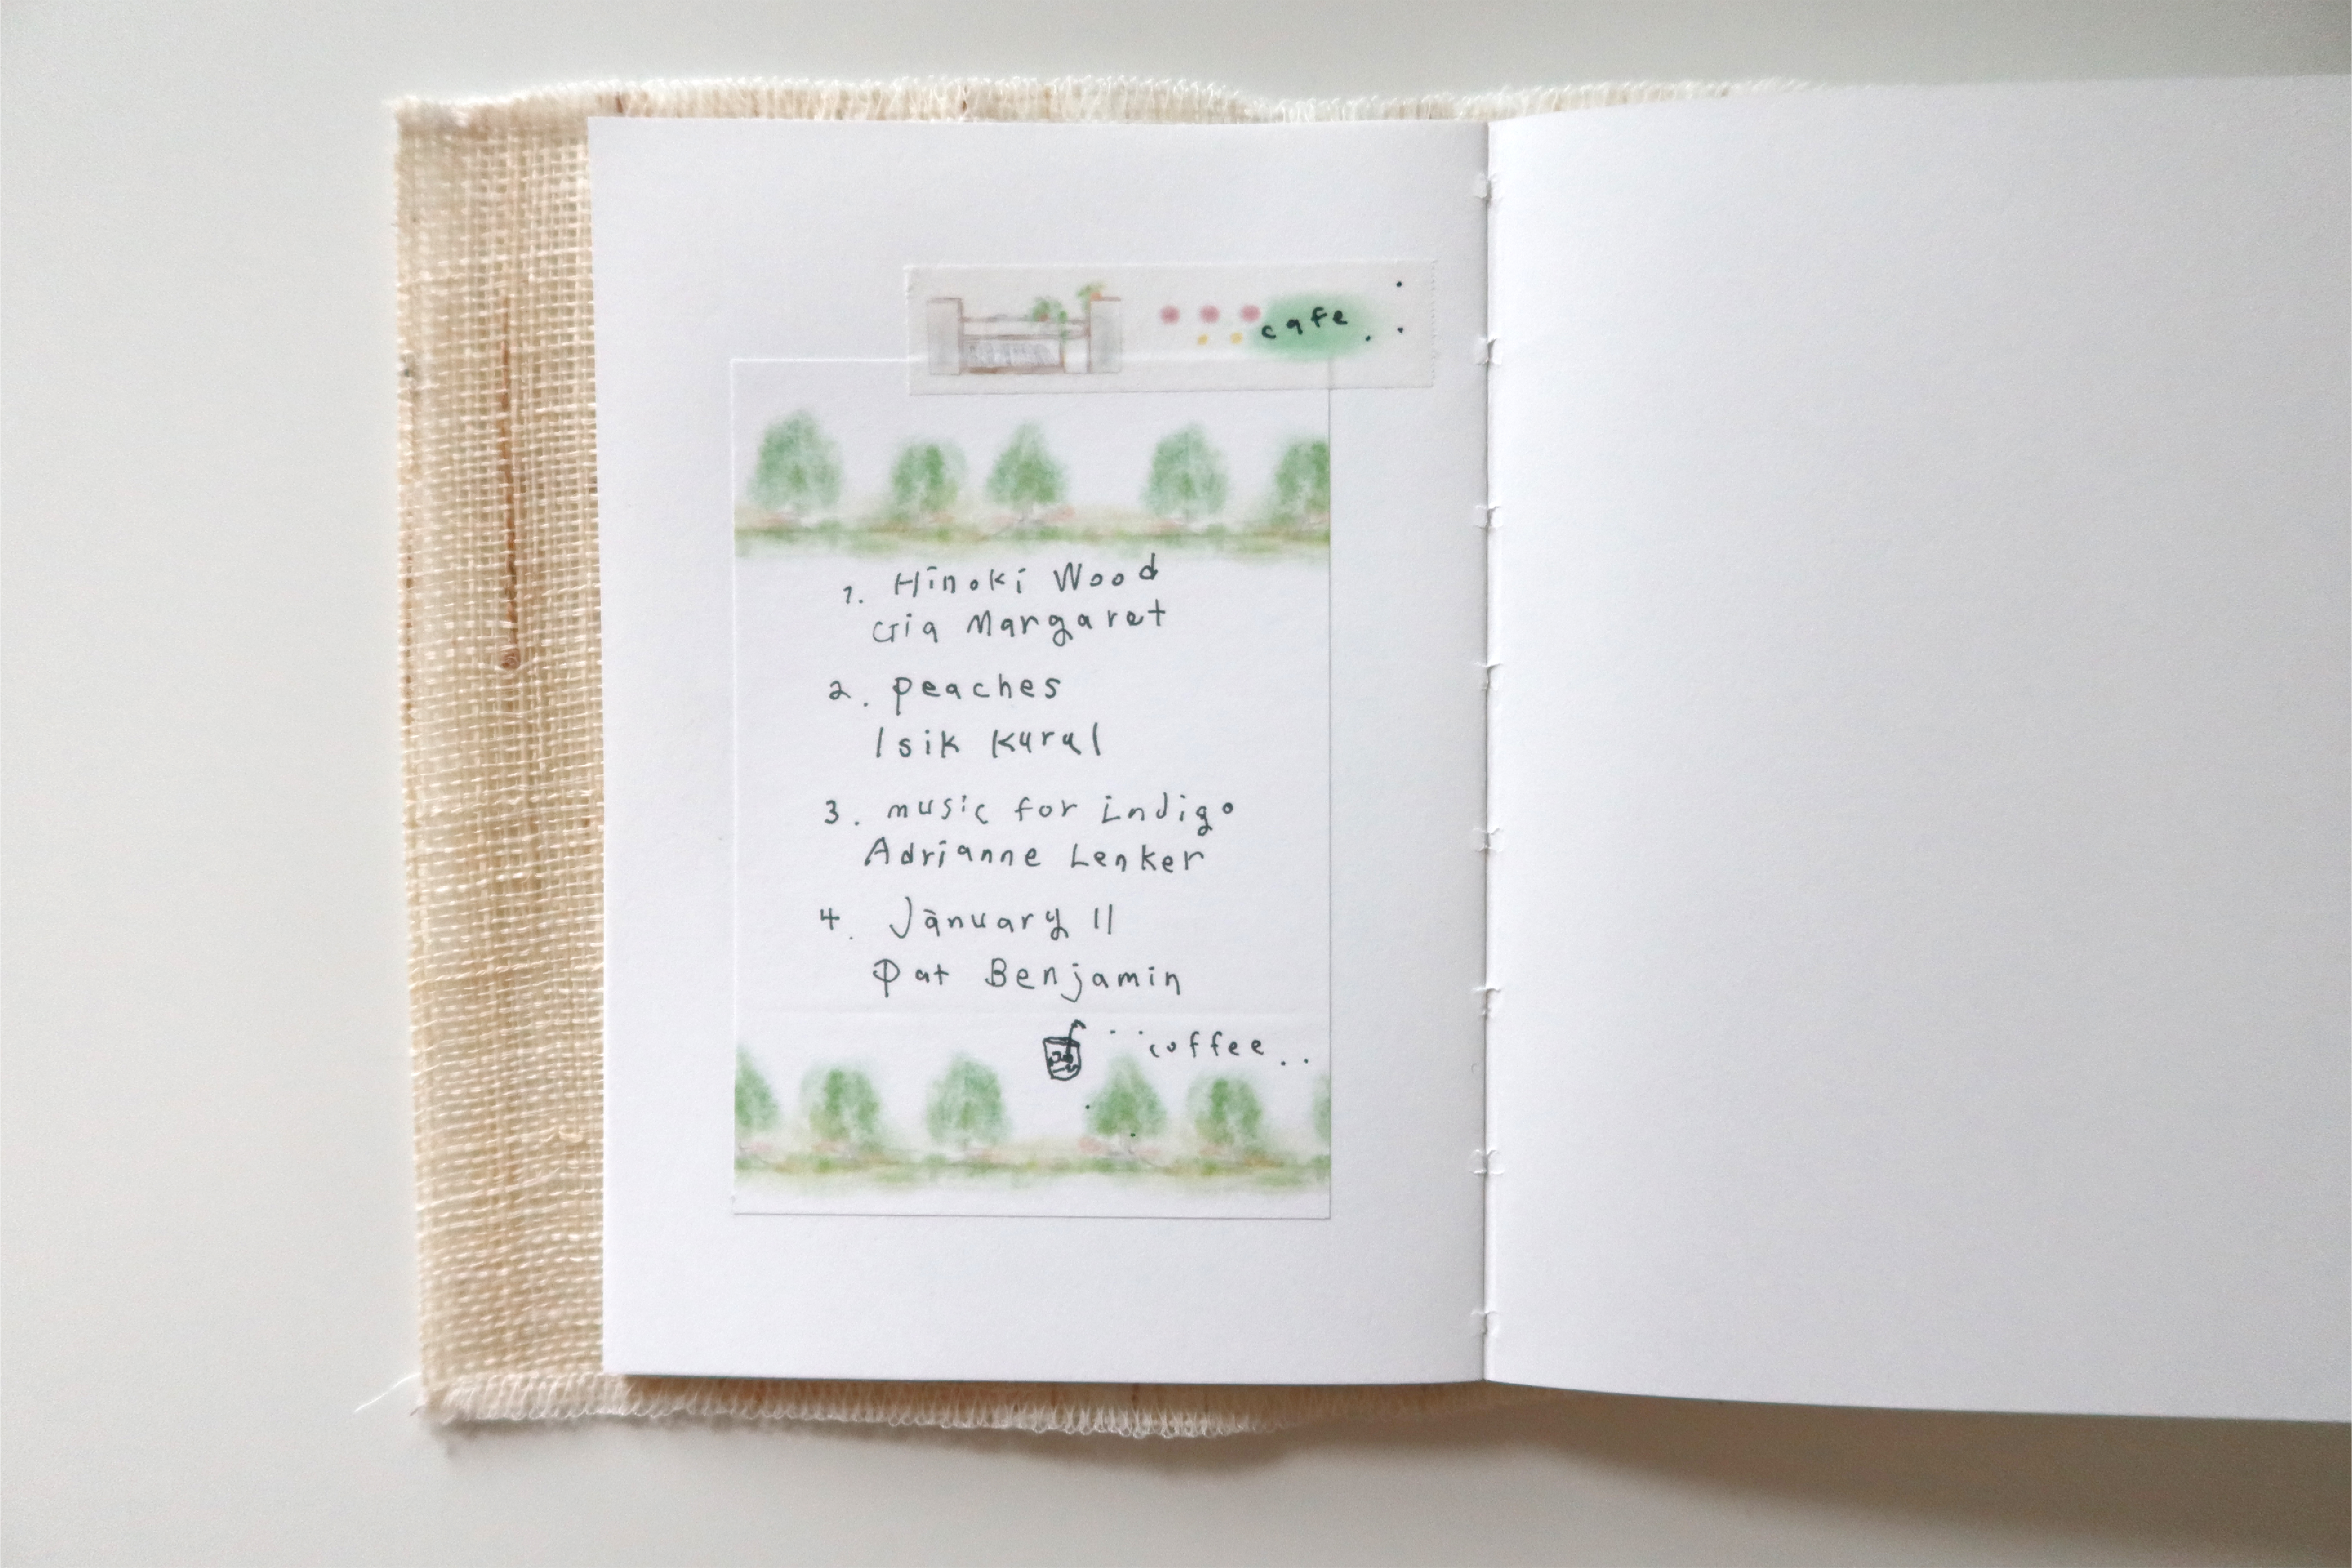 cafe.
1. Hinoki Wood
Gia Margaret
2. peaches
Isik Kural
3. music for indigo
Adrianne Lenker
4. January 11
Pat Benjamin
coffee..